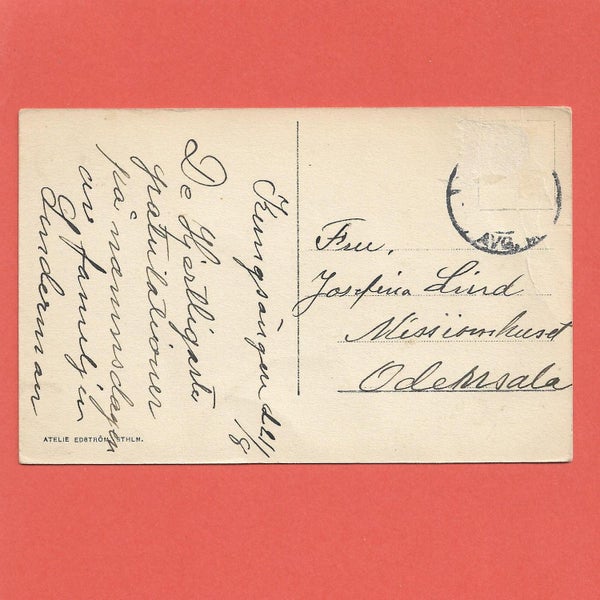 Kungsängen d 21/8
De Hjertligaste
gratulationer
på namnsdagen
av familjen
Linderman
Fru,
Josefina Lind
Missionshuset
Odensala
AVG.
ATELIE EDSTRÖM, STHLM.